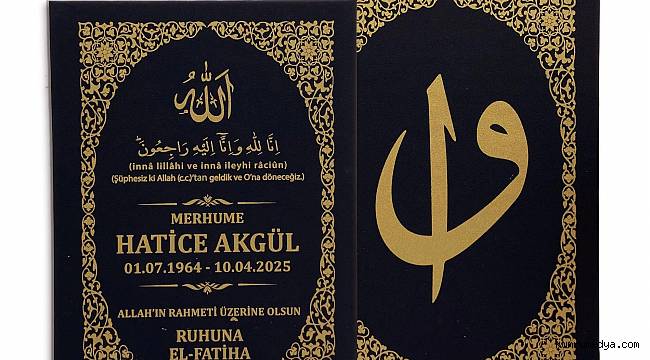 الله
اِنَّا لِلّٰهِ وَاِنَّٓا اِلَيْهِ رَاجِعُونَ
(innâ lillâhi ve innâ ileyhi râciûn)
(Şüphesiz ki Allah (c.c)'tan geldik ve O'na döneceğiz.)
MERHUME
HATİCE AKGÜL
01.07.1964 - 10.04.2025
ALLAH'IN RAHMETİ ÜZERİNE OLSUN
RUHUNA
EL-FATİHA
او